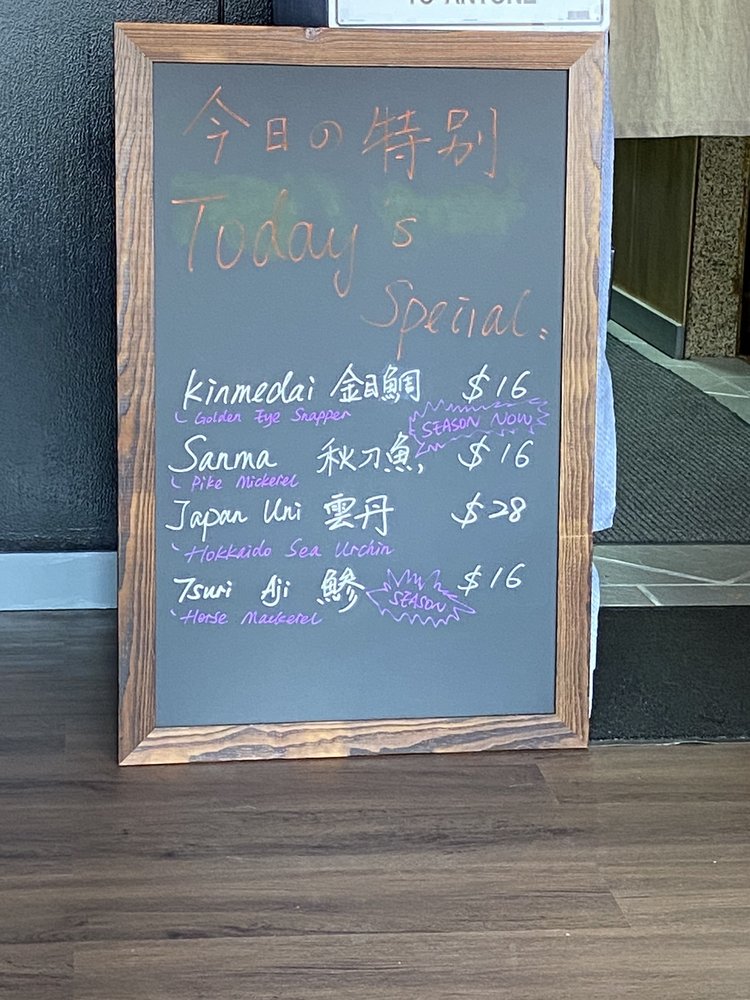 TO ANYONE
今日の特別
Today's
Special
Kinmedai 金目鯛 $16
Golden Eye Snapper
SEASON NOW
Sanma 秋刀魚 $16
Pike Mickerel
Japan Uni 雲丹 $28
Hokkaido Sea Urchin
Tsuri Aji 鯵 $16
SEASON
Horse Mackerel